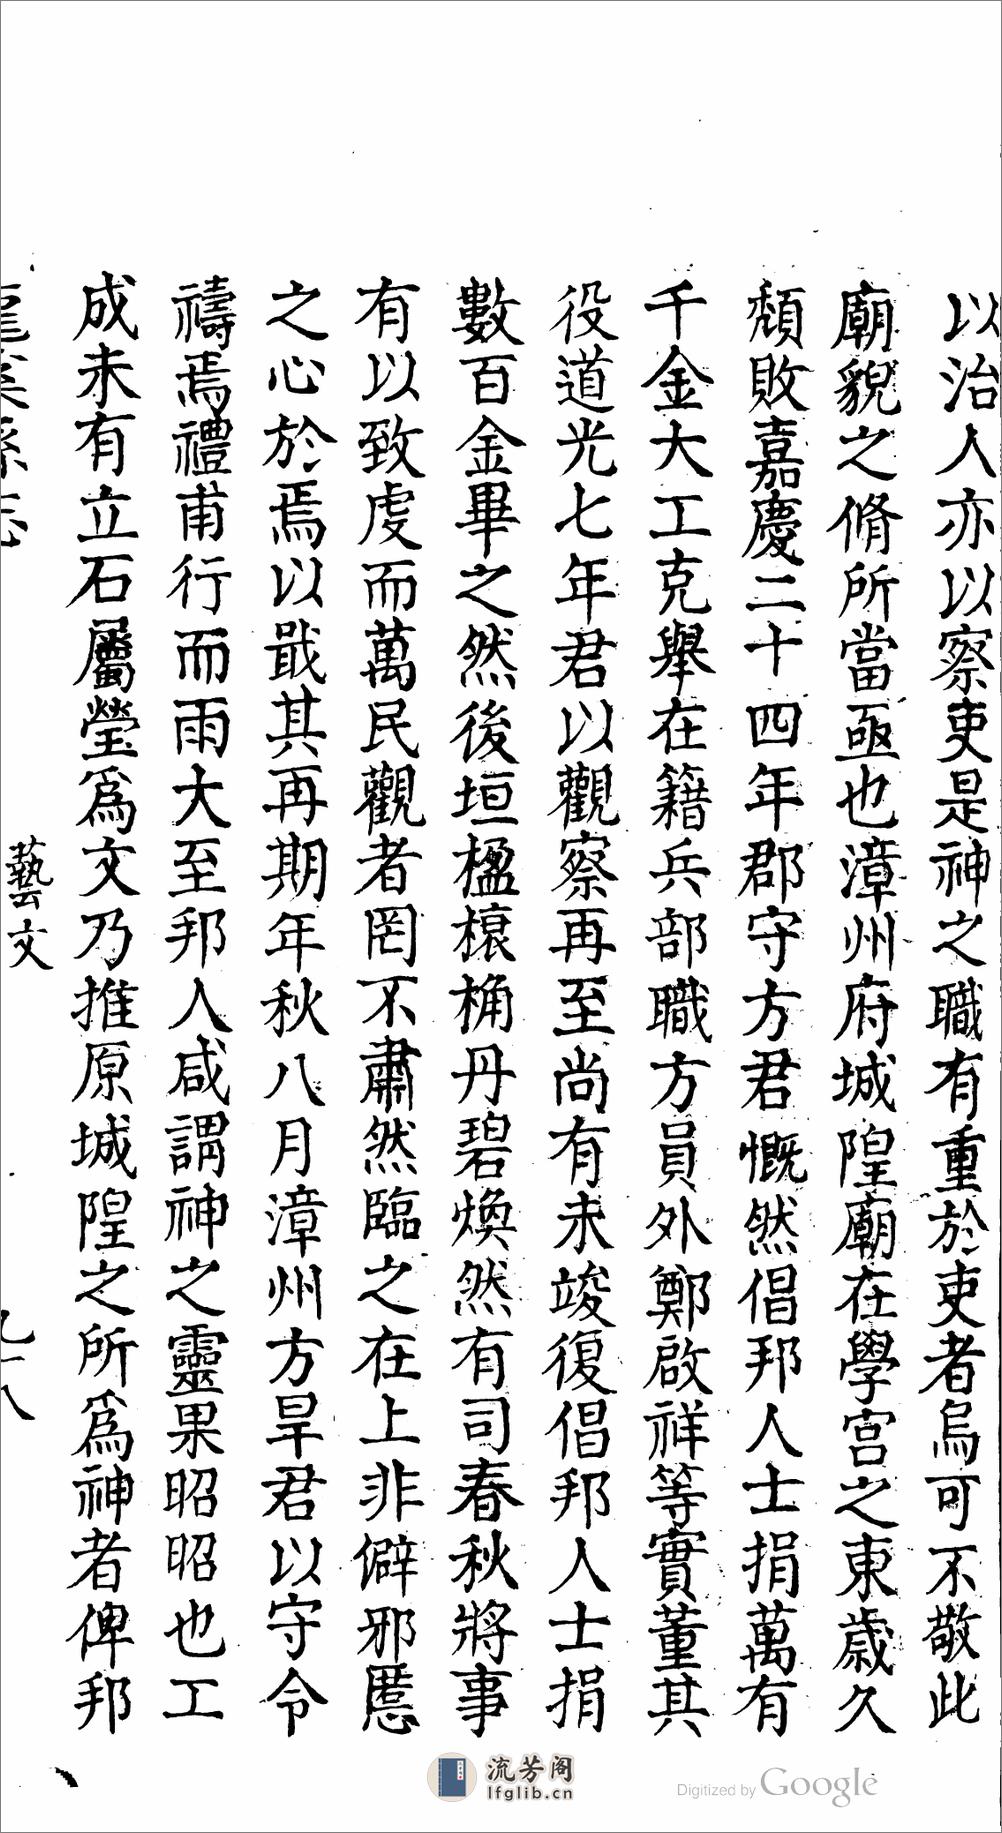 以治人亦以察吏是神之職有重於吏者烏可不敬此
廟貌之脩所當亟也漳州府城隍廟在學宮之東歲久
頹敗嘉慶二十四年郡守方君慨然倡邦人士捐萬有
千金大工克舉在籍兵部職方員外鄭啟祥等實董其
役道光七年君以觀察再至尚有未竣復倡邦人士捐
數百金畢之然後垣楹榱桷丹碧煥然有司春秋將事
有以致虔而萬民觀者罔不肅然臨之在上非僻邪慝
之心於焉以戢其再期年秋八月漳州方旱君以守令
禱焉禮甫行而雨大至邦人咸謂神之靈果昭昭也工
成未有立石屬瑩為文乃推原城隍之所為神者俾邦
藝文
流芳阁
lfglib.cn
Digitized by Google